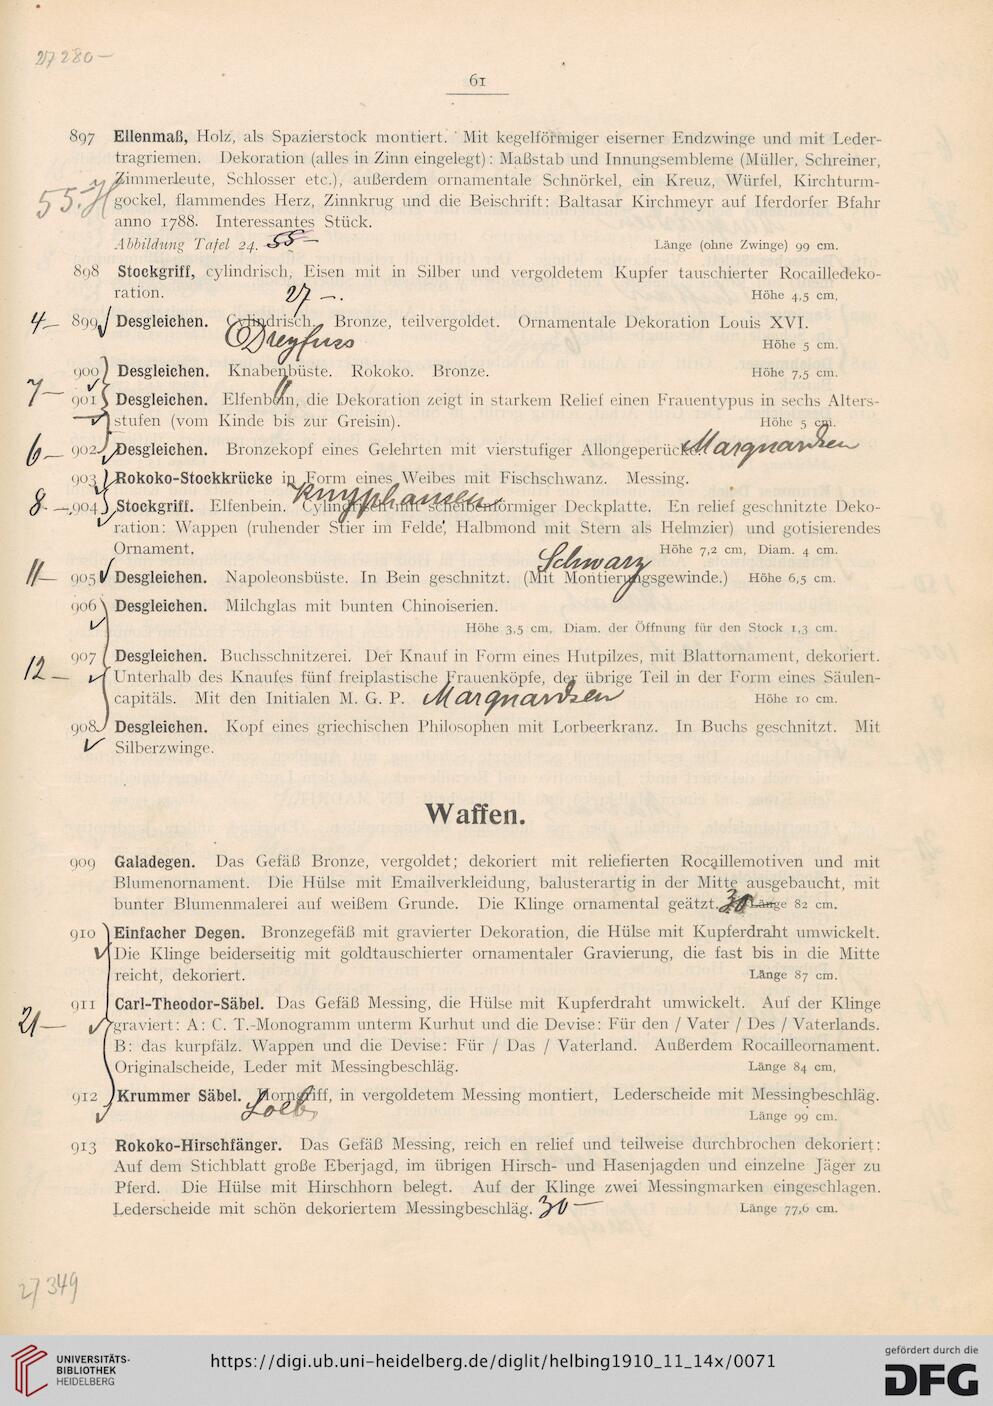 27280—
61
897 Ellenmaß, Holz, als Spazierstock montiert. Mit kegelförmiger eiserner Endzwinge und mit Leder-
tragriemen. Dekoration (alles in Zinn eingelegt): Maßstab und Innungsembleme (Müller, Schreiner,
Zimmerleute, Schlosser etc.), außerdem ornamentale Schnörkel, ein Kreuz, Würfel, Kirchturm-
55.
gockel, flammendes Herz, Zinnkrug und die Beischrift: Baltasar Kirchmeyr auf Iferdorfer Bfahr
anno 1788. Interessantes Stück.
Abbildung Tafel 24. 55— Länge (ohne Zwinge) 99 cm.
898 Stockgriff, cylindrisch, Eisen mit in Silber und vergoldetem Kupfer tauschierter Rocailledeko-
ration. 27—. Höhe 4,5 cm,
4— 899 Desgleichen. Cylindrisch. Bronze, teilvergoldet. Ornamentale Dekoration Louis XVI.
Dreyfuss Höhe 5 cm.
900 Desgleichen. Knabenbüste. Rokoko. Bronze. Höhe 7,5 cm.
7— 901 Desgleichen. Elfenbein, die Dekoration zeigt in starkem Relief einen Frauentypus in sechs Alters-
stufen (vom Kinde bis zur Greisin). Höhe 5 cm.
6— 902 Desgleichen. Bronzekopf eines Gelehrten mit vierstufiger Allongeperücke. Marquardsen
903 Rokoko-Stockkrücke in Form eines Weibes mit Fischschwanz. Messing.
Knyphausen
8— 904 Stockgriff. Elfenbein. Cylindrisch mit scheibenförmiger Deckplatte. En relief geschnitzte Deko-
ration: Wappen (ruhender Stier im Felde, Halbmond mit Stern als Helmzier) und gotisierendes
Ornament. Höhe 7,2 cm, Diam. 4 cm.
Schwarz
11— 905 Desgleichen. Napoleonsbüste. In Bein geschnitzt. (Mit Montierungsgewinde.) Höhe 6,5 cm.
906 Desgleichen. Milchglas mit bunten Chinoiserien.
Höhe 3,5 cm, Diam. der Öffnung für den Stock 1,3 cm.
907 Desgleichen. Buchsschnitzerei. Der Knauf in Form eines Hutpilzes, mit Blattornament, dekoriert.
12— Unterhalb des Knaufes fünf freiplastische Frauenköpfe, der übrige Teil in der Form eines Säulen-
capitäls. Mit den Initialen M. G. P. Marquardsen Höhe 10 cm.
908 Desgleichen. Kopf eines griechischen Philosophen mit Lorbeerkranz. In Buchs geschnitzt. Mit
Silberzwinge.
Waffen.
909 Galadegen. Das Gefäß Bronze, vergoldet; dekoriert mit reliefierten Rocaillemotiven und mit
Blumenornament. Die Hülse mit Emailverkleidung, balusterartig in der Mitte ausgebaucht, mit
bunter Blumenmalerei auf weißem Grunde. Die Klinge ornamental geätzt. 30— Länge 82 cm.
910 Einfacher Degen. Bronzegefäß mit gravierter Dekoration, die Hülse mit Kupferdraht umwickelt.
Die Klinge beiderseitig mit goldtauschierter ornamentaler Gravierung, die fast bis in die Mitte
reicht, dekoriert. Länge 87 cm.
911 Carl-Theodor-Säbel. Das Gefäß Messing, die Hülse mit Kupferdraht umwickelt. Auf der Klinge
21— graviert: A: C. T.-Monogramm unterm Kurhut und die Devise: Für den / Vater / Des / Vaterlands.
B: das kurpfälz. Wappen und die Devise: Für / Das / Vaterland. Außerdem Rocailleornament.
Originalscheide, Leder mit Messingbeschläg. Länge 84 cm,
912 Krummer Säbel. Horngriff, in vergoldetem Messing montiert, Lederscheide mit Messingbeschläg.
Loeb Länge 99 cm.
913 Rokoko-Hirschfänger. Das Gefäß Messing, reich en relief und teilweise durchbrochen dekoriert:
Auf dem Stichblatt große Eberjagd, im übrigen Hirsch- und Hasenjagden und einzelne Jäger zu
Pferd. Die Hülse mit Hirschhorn belegt. Auf der Klinge zwei Messingmarken eingeschlagen.
Lederscheide mit schön dekoriertem Messingbeschläg. 30— Länge 77,6 cm.
27349
UNIVERSITÄTS-
BIBLIOTHEK
HEIDELBERG
https://digi.ub.uni-heidelberg.de/diglit/helbing1910_11_14x/0071
gefördert durch die
DFG